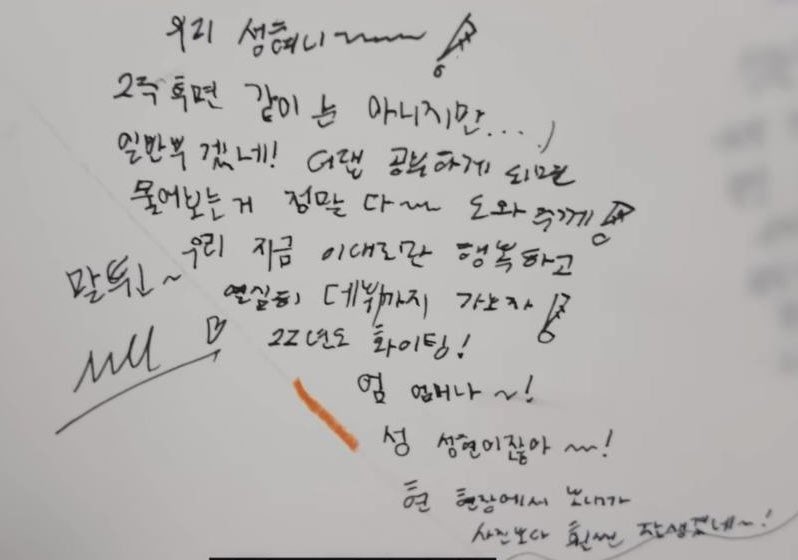 우리 성혀니~~~!
2주 후면 같이는 아니지만...,
일반부 겠네! 더랩 공부하게 되면
물어보는거 정말 다~~ 도와줄게!
우리 지금 이대로만 행복하고
열심히 데뷔까지 가보자!
22년도 화이팅!
엄 엄머나~!
성 성현이잖아~~!
현 현장에서 보니까
사진보다 훨씬 잘생겼네~!